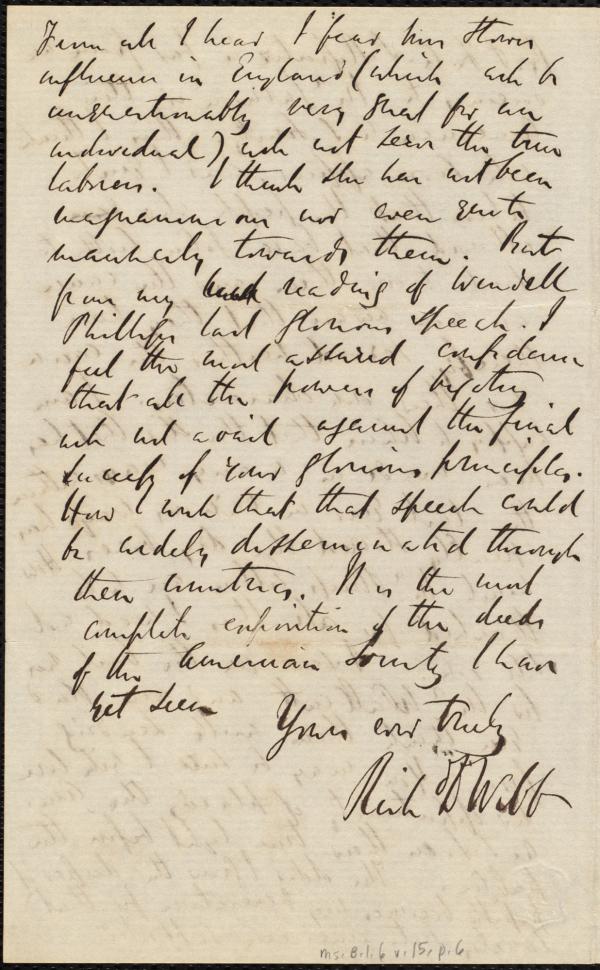 From all I hear I fear Mrs Stowes
influence in England (which will be
unquestionably very great for an
individual) will not serve the true
laborers. I think she has not been
magnanimous nor even quite
mannerly towards them. But
from my reading of Wendell
Phillips last glorious speech. I
feel the most assured confidence
that all the powers of bigotry
will not avail against the final
success of your glorious principles.
How I wish that that speech could
be widely disseminated through
these countries. It is the most
complete exposition of the deeds
of the American Society I have
yet seen
Yours ever truly
Rich D Webb
ms. B.1.6 v.15, p.6